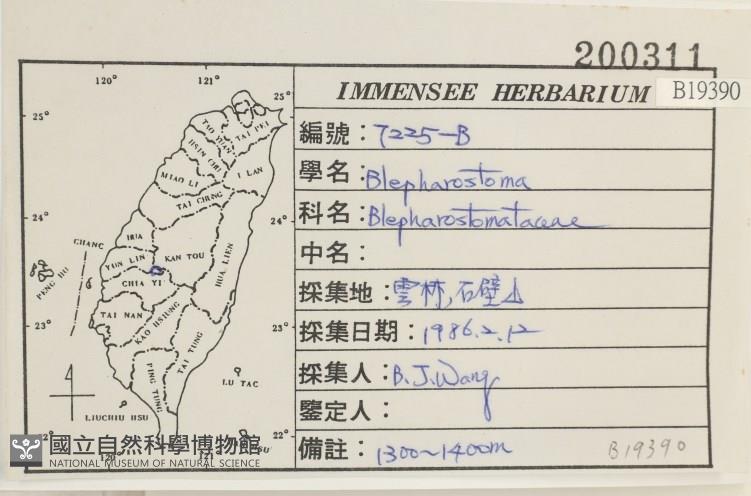 200311
IMMENSEE HERBARIUM
B19390
編號：7225-B
學名：Blepharostoma
科名：Blepharostomataceae
中名：
採集地：雲林,石壁山
採集日期：1986.2.12
採集人：B.J.Wang
鑒定人：
備註：1300~1400m
B19390
120° 121°
25° 25°
TAO YUAN
TAI PEI
HSIN CHU
I LAN
MIAO LI
TAI CHUNG
24° 24°
CHANG HUA
KAN TOU
YUN LIN
HUA LIEN
PENG HU
CHIA YI
TAI NAN
KAO HSIUNG
23° 23°
TAI TUNG
PING TUNG
LU TAO
LIUCHIU HSU
22°
120° 121°
國立自然科學博物館
NATIONAL MUSEUM OF NATURAL SCIENCE